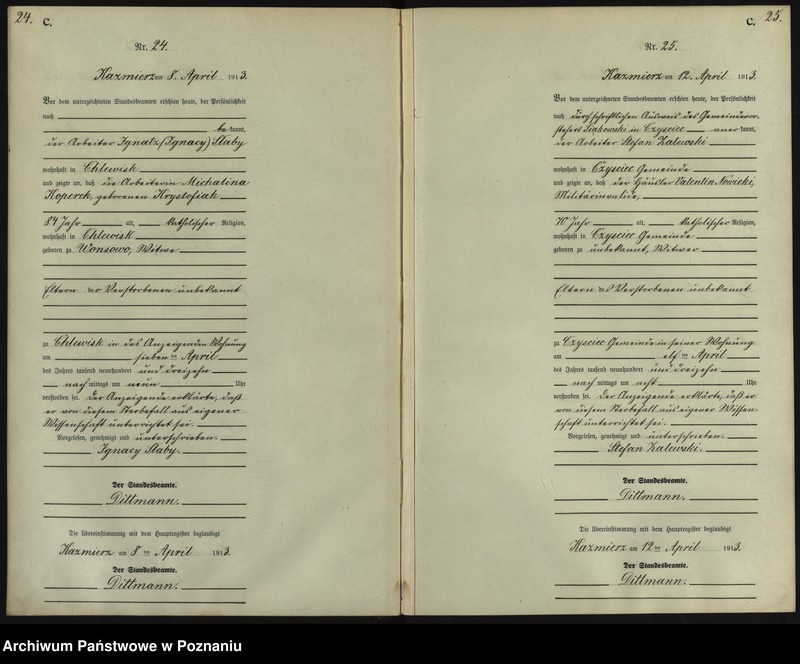 24.
C.
Nr. 24.
Kazmierz am 8. April 1913.
Vor dem unterzeichneten Standesbeamten erschien heute, der Persönlichkeit
nach
bekannt,
der Arbeiter Ignatz (Ignacy) Slaby
wohnhaft in Chlewisk
und zeigte an, daß die Arbeiterin Michalina
Koperek, geborenen Krystofiak
84 Jahr alt, katholischer Religion,
wohnhaft in Chlewisk
geboren zu Wonsowo, Witwe
Eltern der Verstorbenen unbekannt
zu Chlewisk in des Anzeigenden Wohnung
am sieben ten April
des Jahres tausend neunhundert und dreizehn
nach mittags um neun Uhr
verstorben sei. Der Anzeigende erklärte, daß
er von diesem Sterbefall aus eigener
Wissenschaft unterrichtet sei.
Vorgelesen, genehmigt und unterschrieben.
Ignacy Slaby.
Der Standesbeamte.
Dittmann.
Die Übereinstimmung mit dem Hauptregister beglaubigt
Kazmierz am 8 ten April 1913.
Der Standesbeamte.
Dittmann.
25.
C.
Nr. 25.
Kazmierz am 12. April 1913.
Vor dem unterzeichneten Standesbeamten erschien heute, der Persönlichkeit
nach durch schriftlichen Ausweis des Gemeindevor-
stehers in Czysciec anerkannt,
der Arbeiter Stefan Zalewski
wohnhaft in Czysciec Gemeinde
und zeigte an, daß der Häusler Valentin Nowicki,
Militärinvalide,
70 Jahr alt, katholischer Religion,
wohnhaft in Czysciec Gemeinde
geboren zu unbekannt, Witwer
Eltern des Verstorbenen unbekannt
zu Czysciec Gemeinde in seiner Wohnung
am elf ten April
des Jahres tausend neunhundert und dreizehn
nach mittags um acht Uhr
verstorben sei. Der Anzeigende erklärte, daß er
von diesem Sterbefall aus eigener Wissen-
schaft unterrichtet sei.
Vorgelesen, genehmigt und unterschrieben.
Stefan Zalewski.
Der Standesbeamte.
Dittmann.
Die Übereinstimmung mit dem Hauptregister beglaubigt
Kazmierz am 12 ten April 1913.
Der Standesbeamte.
Dittmann.
Archiwum Państwowe w Poznaniu